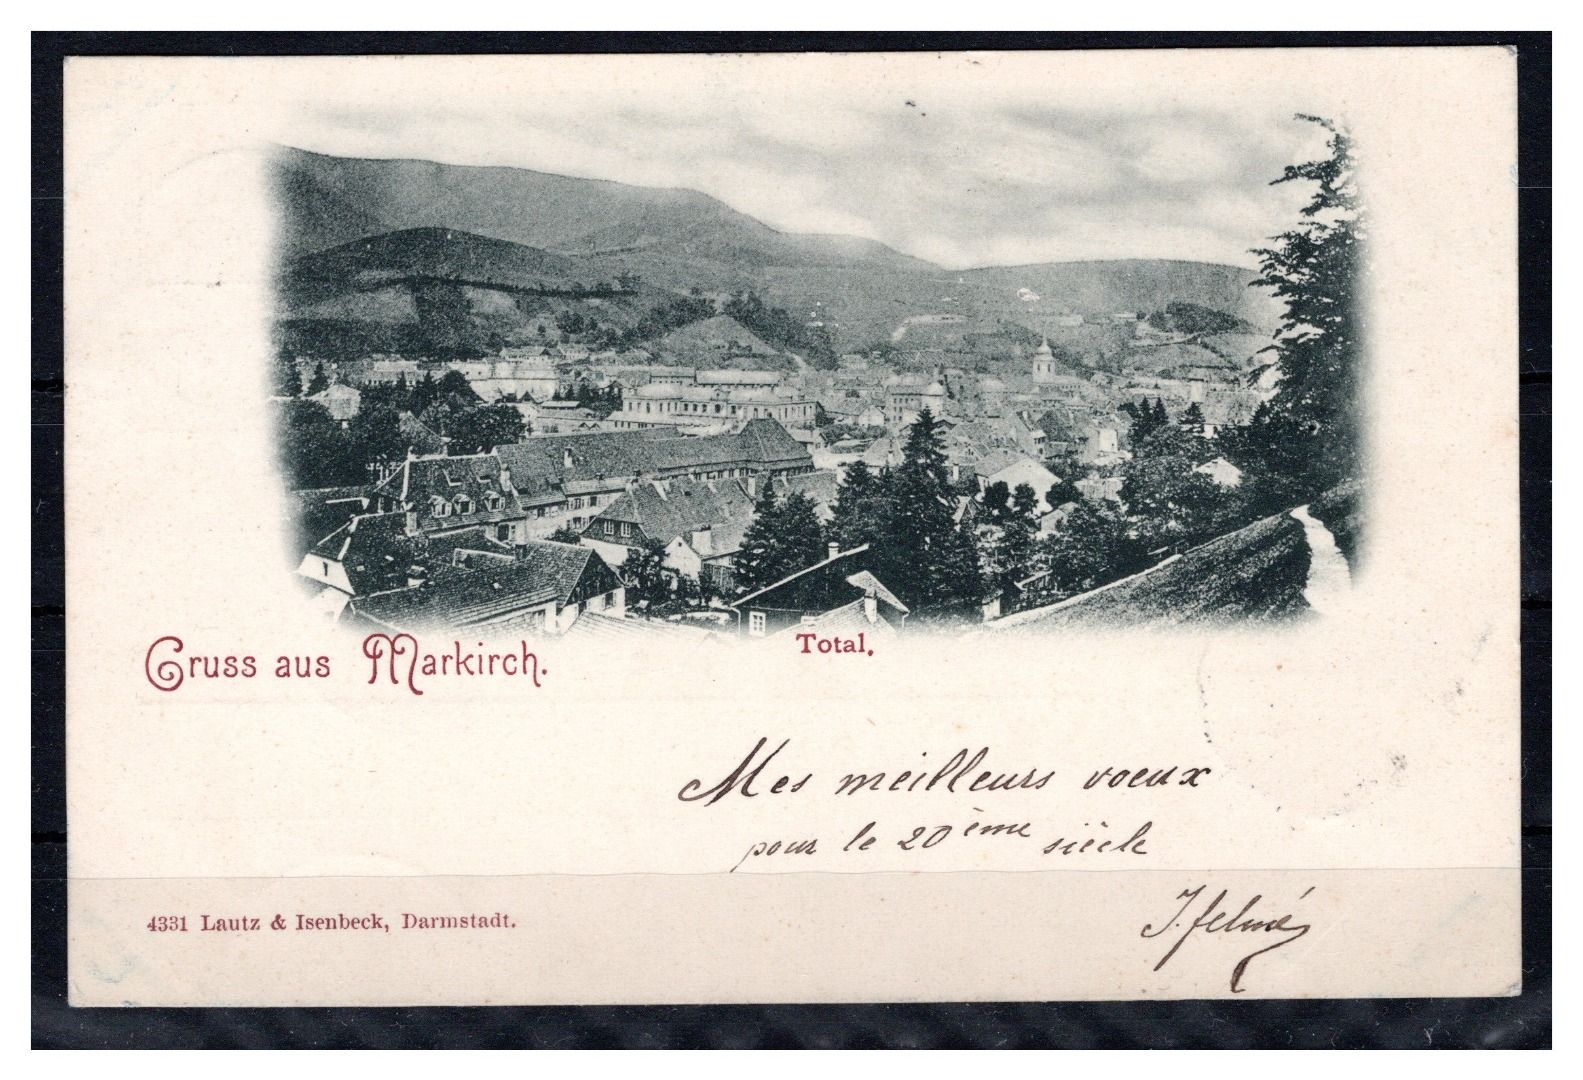 Gruss aus Markirch.
Total.
Mes meilleurs voeux
pour le 20ème siècle
4331 Lautz & Isenbeck, Darmstadt.